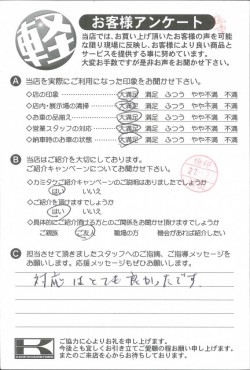 軽
お客様アンケート
当店では、お買い上げ頂いたお客様の声を可能
な限り現場に反映し、お客様により良い商品と
サービスを提供する事に努めています。
大変お手数ですが是非お声をお聞かせ下さい。
A 当店を実際にご利用になった印象をお聞かせ下さい。
◇店の印象 大満足 満足 ふつう やや不満 不満
◇店内・展示場の清掃 大満足 満足 ふつう やや不満 不満
◇お車の品揃え 大満足 満足 ふつう やや不満 不満
◇営業スタッフの対応 大満足 満足 ふつう やや不満 不満
◇納車時のお車の状態 大満足 満足 ふつう やや不満 不満
B 当店はご紹介を大切にしております。
ご紹介キャンペーンについてお聞かせ下さい。
◇カミタケご紹介キャンペーンのご説明はありましたでしょうか
はい いいえ
◇ご紹介を頂けますでしょうか
はい いいえ
◇具体的にご紹介頂ける方とのご関係をお聞かせ頂けますでしょうか
ご親戚 ご友人 職場の方 機会があれば紹介したい
C 担当させて頂きましたスタッフへのご指摘、ご指導メッセージを
お願いします。応援メッセージもぜひお願いします。
対応はとても良かったです。
K
ご協力に心よりお礼を申し上げます。
今後とも宜しくお引き立てご愛顧の程お願い申し上げます。
またのご来店を心からお待ちしております。